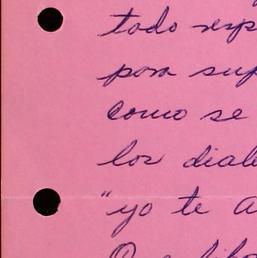 todo resp
para sup
como se
los diale
"yo te a